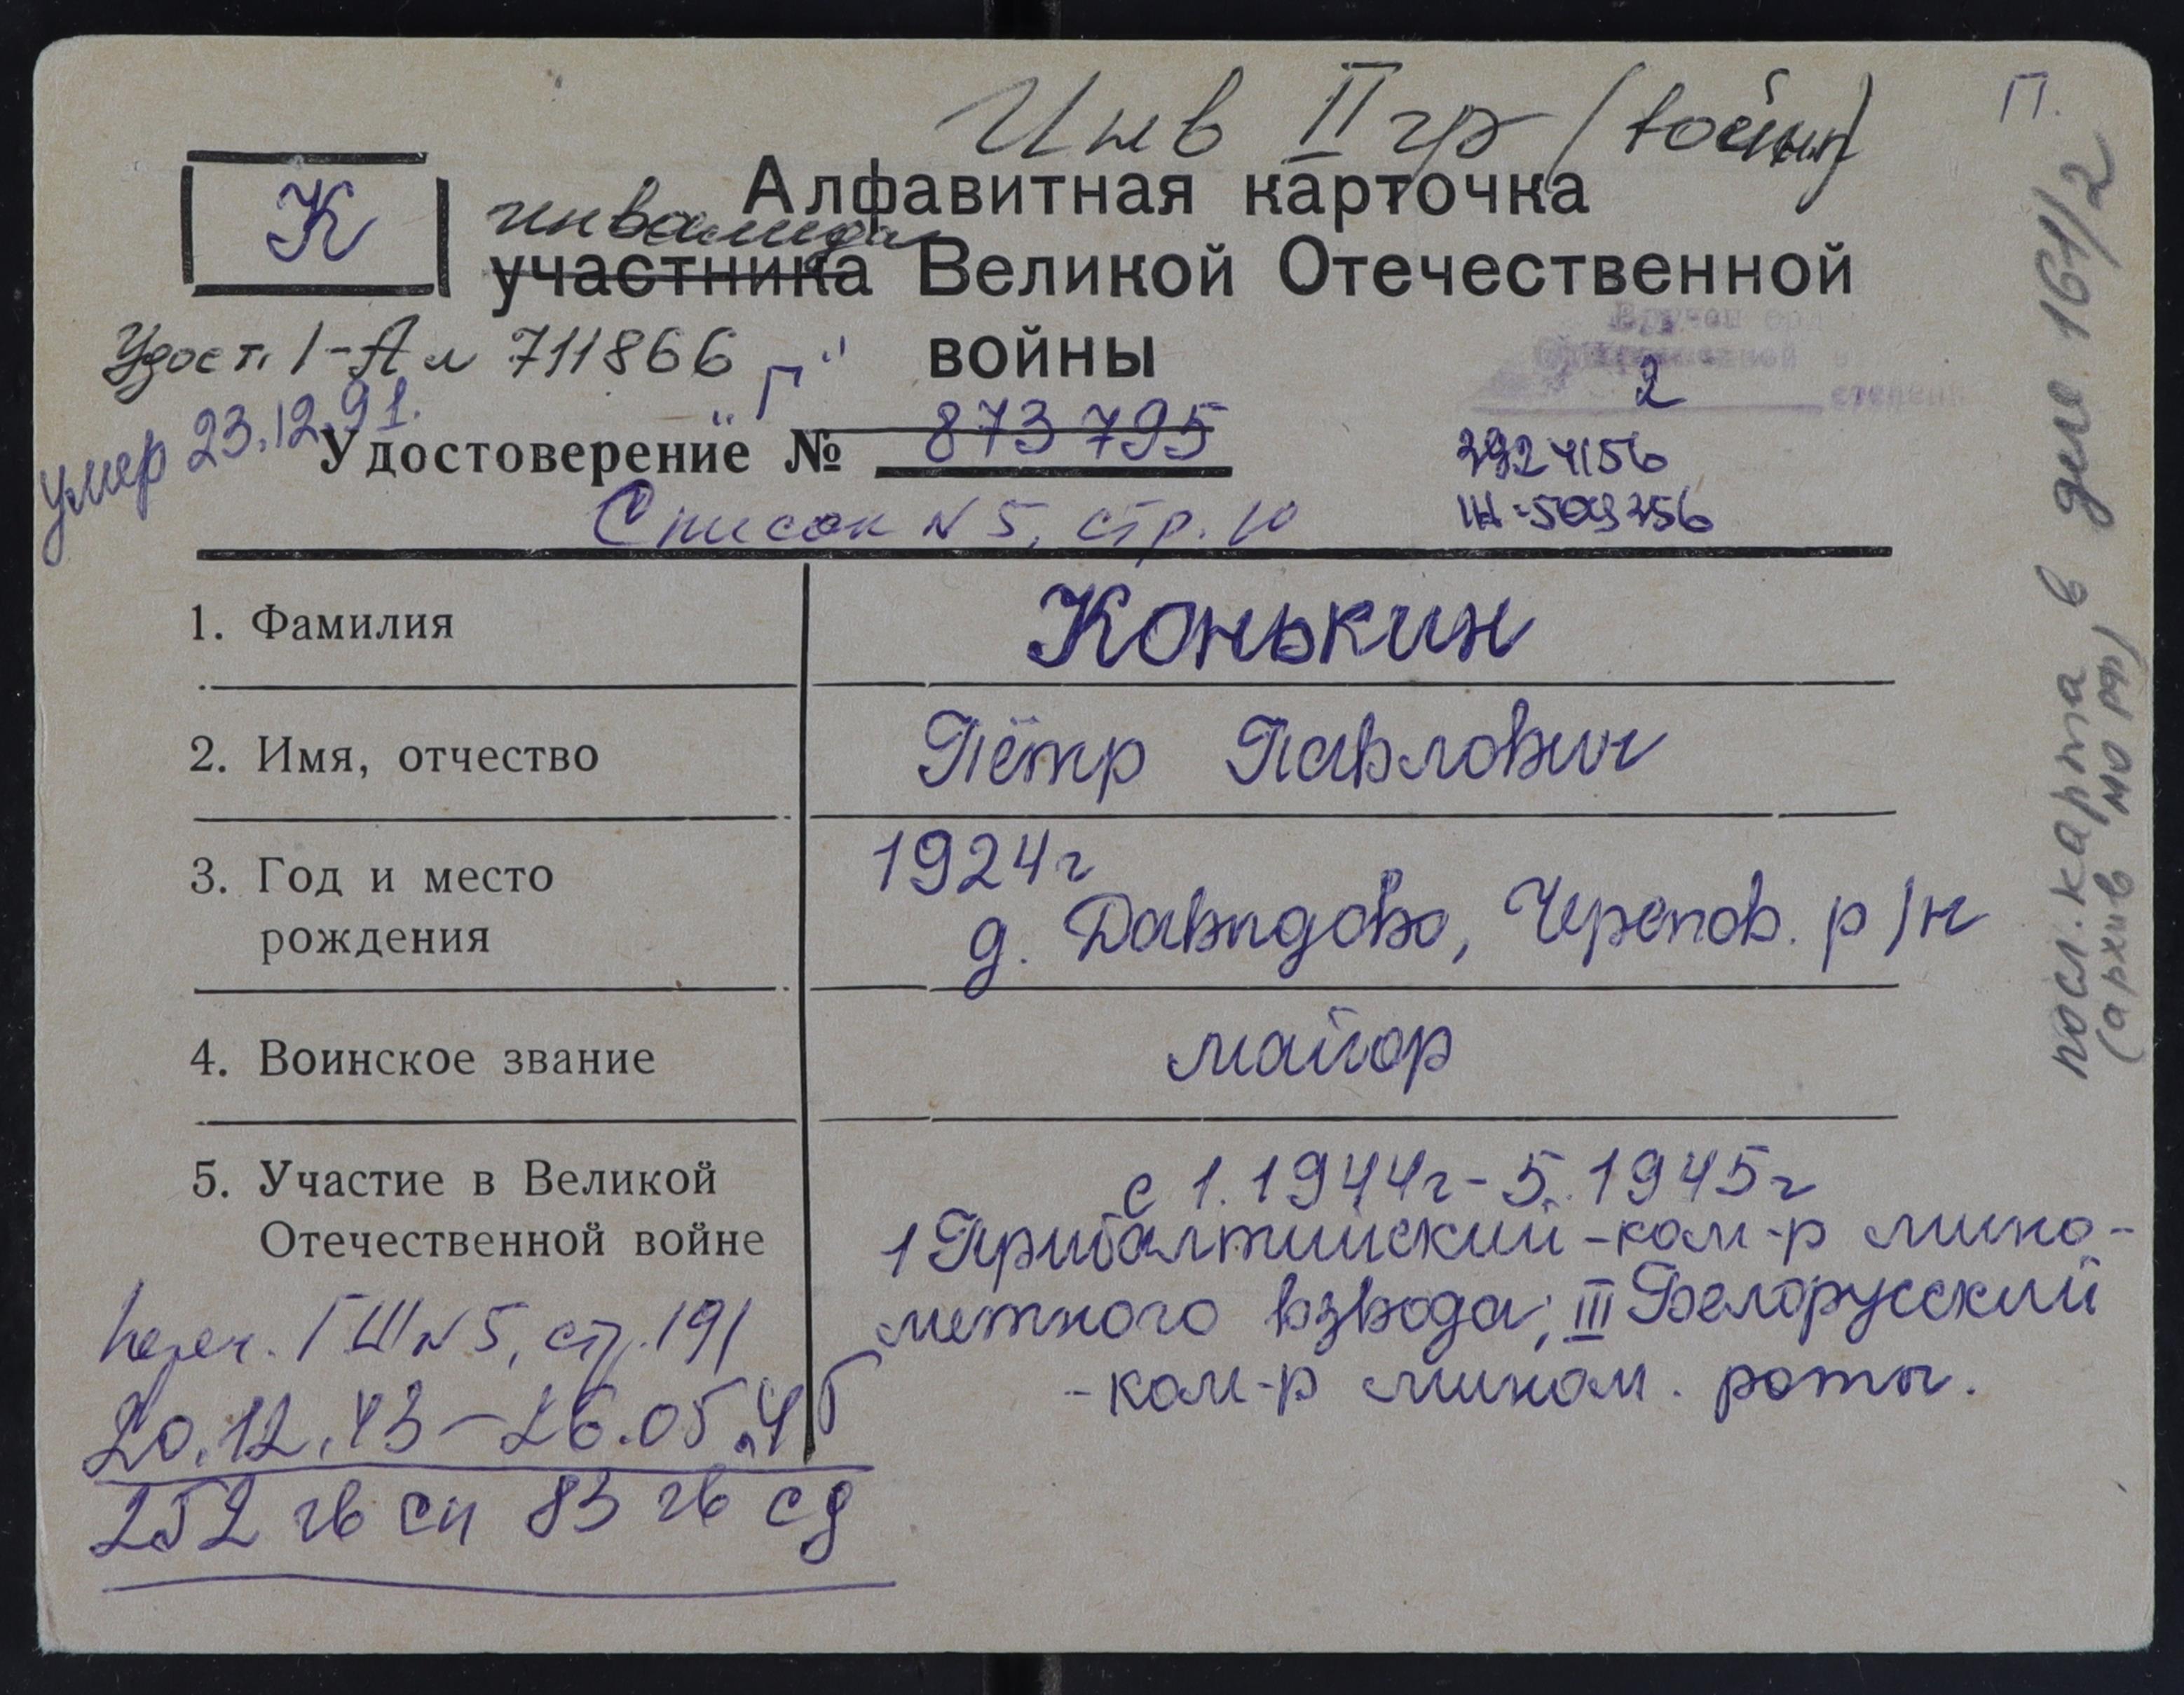 Инв II гр (войны)
П.
К
Алфавитная карточка
инвалида
участника Великой Отечественной
войны
Удост. 1-А л 711866
Вручен орд
Отечественной
2
степени
умер 23.12.91.
"Г"
Удостоверение № 873795
3924156
Список N 5, стр. 10
1. Фамилия
Конькин
2. Имя, отчество
Пётр Павлович
3. Год и место
рождения
1924г
д. Давыдово, Черепов. р/н
4. Воинское звание
майор
5. Участие в Великой
Отечественной войне
с 1.1944г-5.1945г
1 Прибалтийский-ком-р мино-
метного взвода; III Белорусский
-ком-р мином. роты.
переч. ГШ N 5, стр. 191
20.12.43-26.05.45
252 гв сп 83 гв сд
посл. карта в деле 161/2
(архив МО РФ)